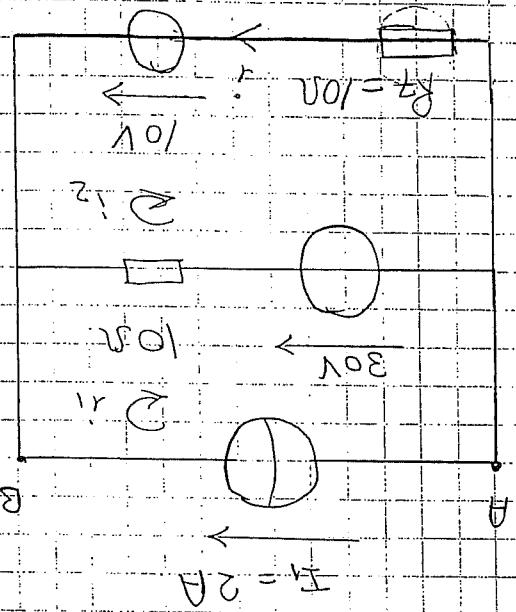 I1 = 2A
A B
i1
30V 10Ω
i2
10V
R7=10Ω i